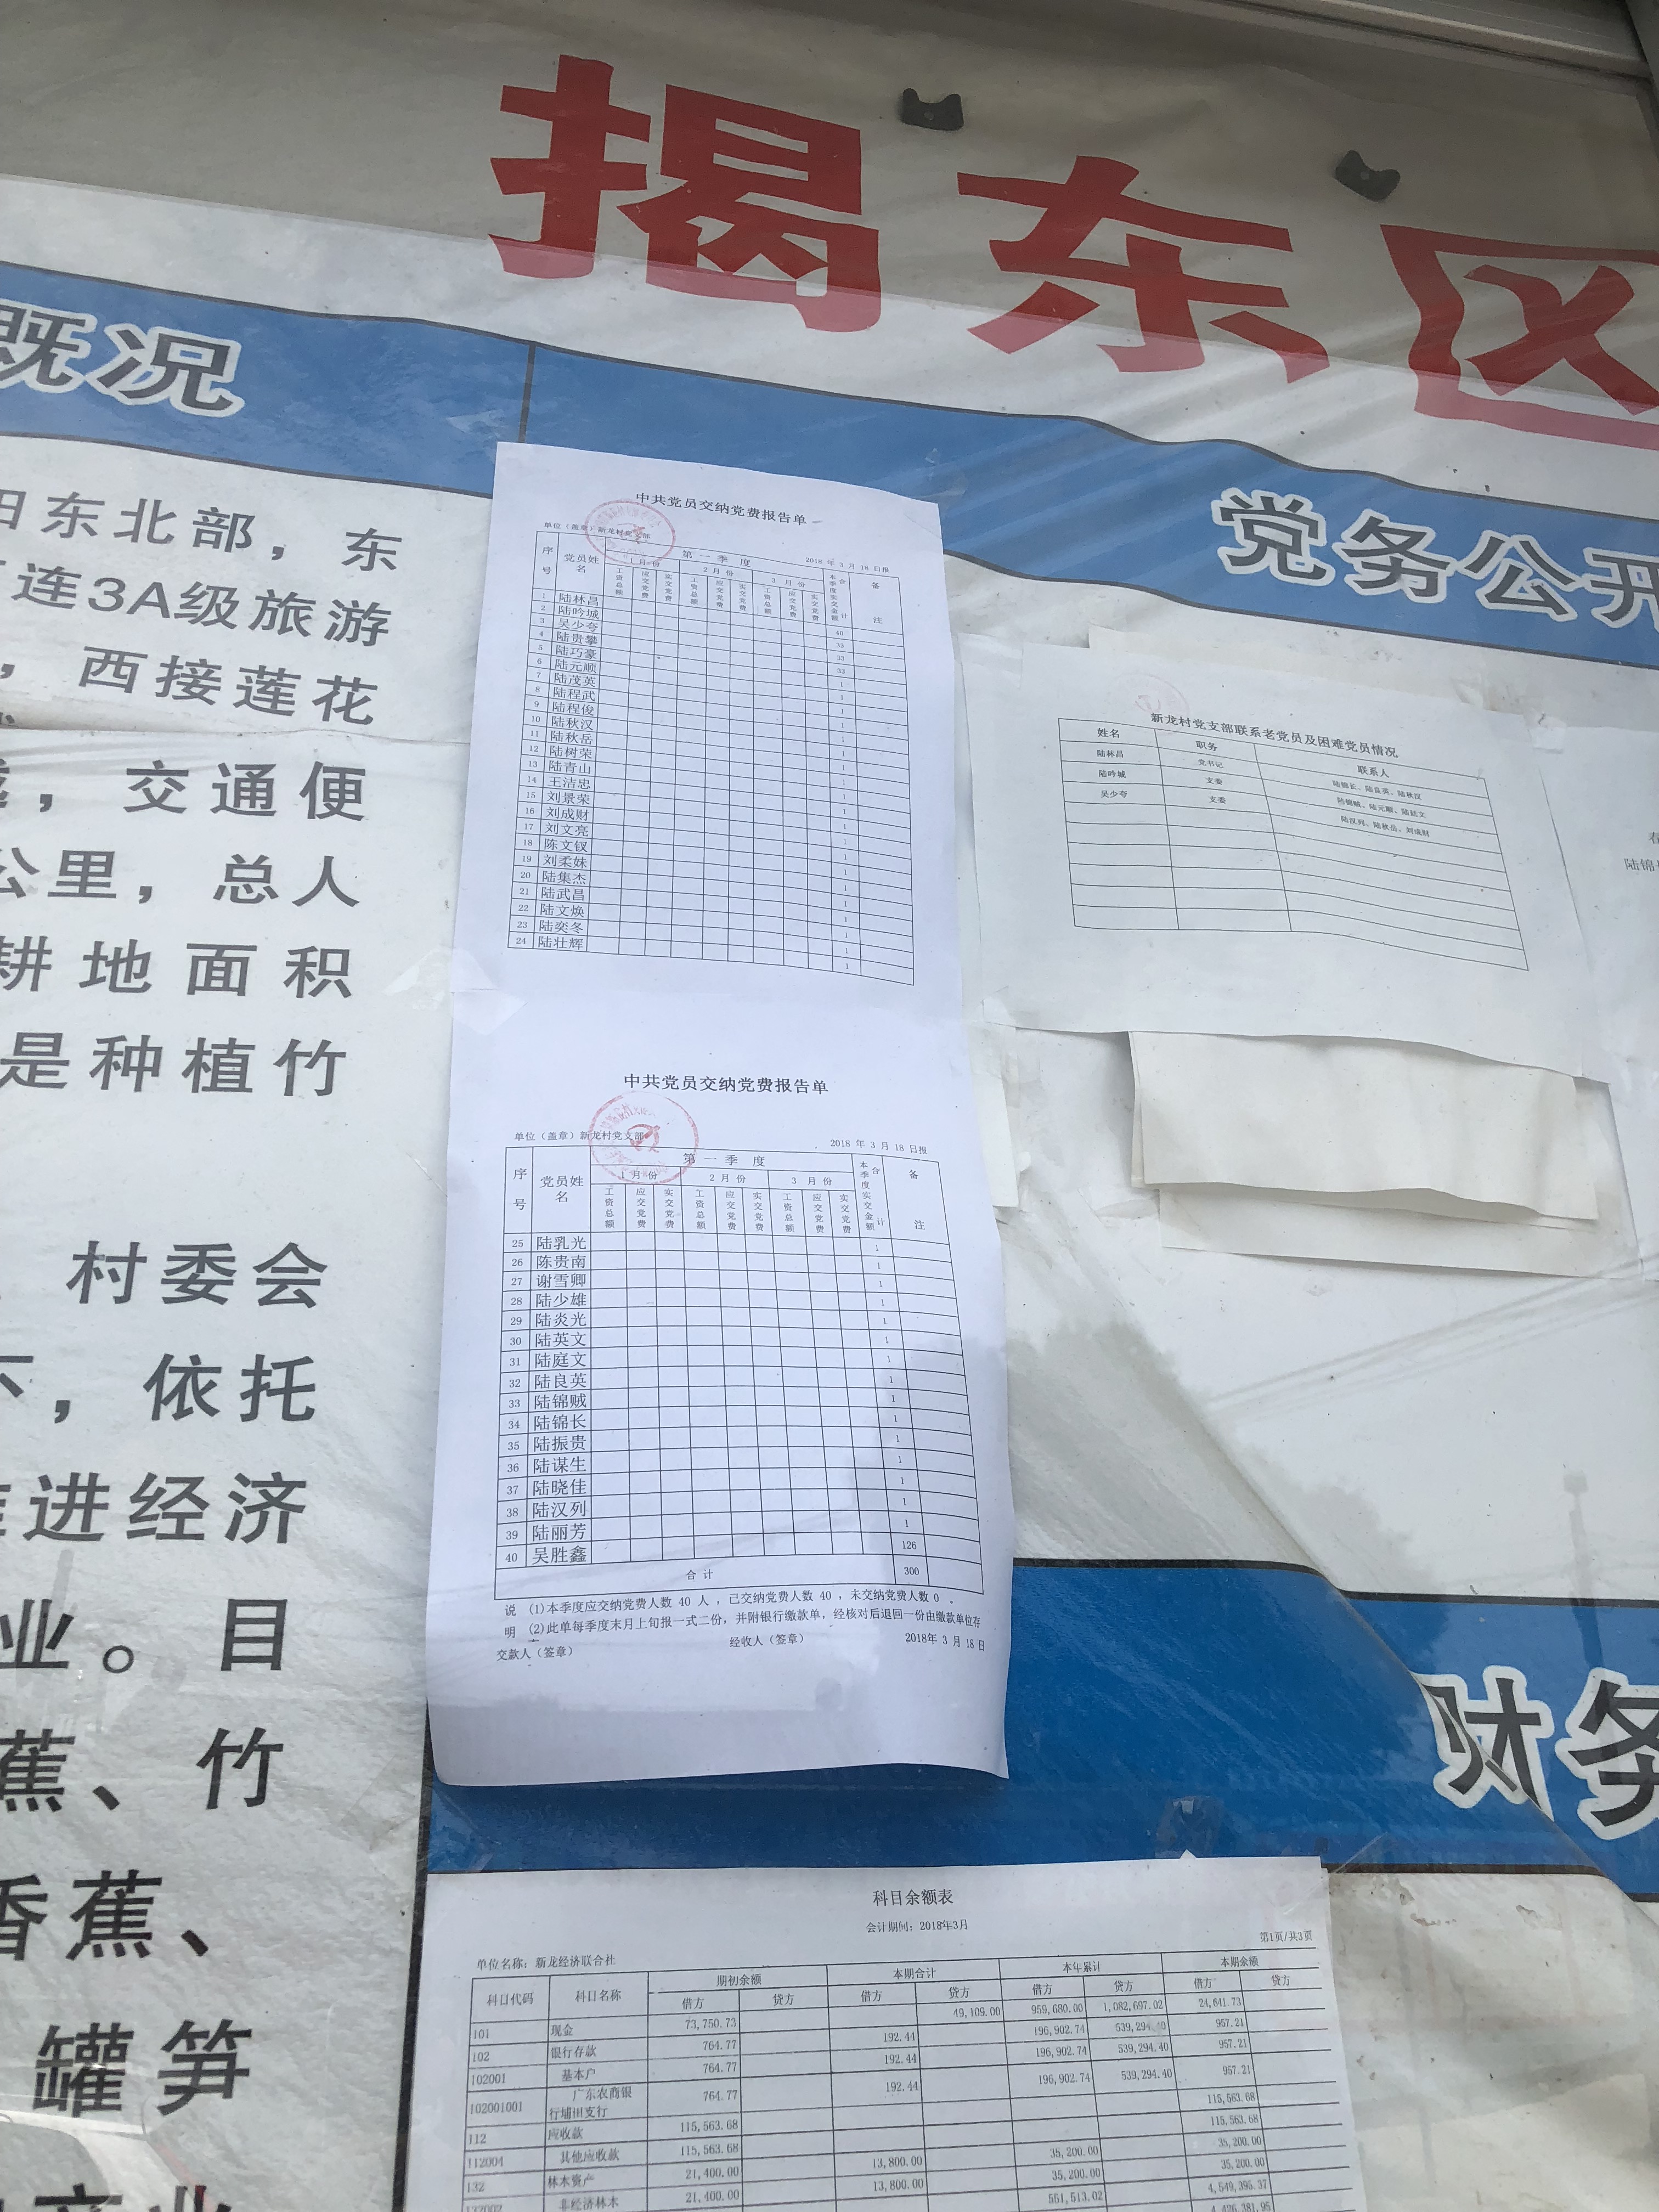 揭东区
概况
田东北部，东
连3A级旅游
，西接莲花
，交通便
公里，总人
耕地面积
是种植竹
村委会
下，依托
推进经济
业。目
蕉、竹
香蕉、
罐笋
党务公开
中共党员交纳党费报告单
单位（盖章）新龙村党支部
2018 年 3 月 18 日报
序号 党员姓名 第一季度 本季度实交金额合计 备注
1月份 2月份 3月份
工资总额 应交党费 实交党费 工资总额 应交党费 实交党费 工资总额 应交党费 实交党费
1 陆林昌 40
2 陆吟城 33
3 吴少夸 33
4 陆贵攀 33
5 陆巧豪 1
6 陆元顺 1
7 陆茂英 1
8 陆程武 1
9 陆程俊 1
10 陆秋汉 1
11 陆秋岳 1
12 陆树荣 1
13 陆青山 1
14 王洁忠 1
15 刘景荣 1
16 刘成财 1
17 刘文亮 1
18 陈文钗 1
19 刘柔妹 1
20 陆集杰 1
21 陆武昌 1
22 陆文焕 1
23 陆奕冬 1
24 陆壮辉 1
中共党员交纳党费报告单
单位（盖章）新龙村党支部
2018 年 3 月 18 日报
序号 党员姓名 第一季度 本季度实交金额合计 备注
1月份 2月份 3月份
工资总额 应交党费 实交党费 工资总额 应交党费 实交党费 工资总额 应交党费 实交党费
25 陆乳光 1
26 陈贵南 1
27 谢雪卿 1
28 陆少雄 1
29 陆炎光 1
30 陆英文 1
31 陆庭文 1
32 陆良英 1
33 陆锦贼 1
34 陆锦长 1
35 陆振贵 1
36 陆谋生 1
37 陆晓佳 1
38 陆汉列 1
39 陆丽芳 1
40 吴胜鑫 126
合计 300
说明 (1)本季度应交纳党费人数 40 人，已交纳党费人数 40 ，未交纳党费人数 0 。
(2)此单每季度末月上旬报一式二份，并附银行缴款单，经核对后退回一份由缴款单位存
交款人（签章） 经收人（签章） 2018年 3 月 18 日
新龙村党支部联系老党员及困难党员情况
姓名 职务 联系人
陆林昌 党书记 陆锦长、陆良英、陆秋汉
陆吟城 支委 陆锦贼、陆元顺、陆廷文
吴少夸 支委 陆汉列、陆秋岳、刘成财
陆锦
财务
科目余额表
会计期间：2018年3月
第1页/共3页
单位名称：新龙经济联合社
科目代码 科目名称 期初余额 本期合计 本年累计 本期余额
借方 贷方 借方 贷方 借方 贷方 借方 贷方
101 现金 73,750.73 49,109.00 959,680.00 1,082,697.02 24,641.73
102 银行存款 764.77 192.44 196,902.74 539,294.40 957.21
102001 基本户 764.77 192.44 196,902.74 539,294.40 957.21
102001001 广东农商银行埔田支行 764.77 192.44 196,902.74 539,294.40 957.21
112 应收款 115,563.68 115,563.68
112004 其他应收款 115,563.68 115,563.68
132 林木资产 21,400.00 13,800.00 35,200.00 35,200.00
132002 非经济林木 21,400.00 13,800.00 35,200.00 35,200.00
551,513.02 4,549,395.37
4,426,381.95